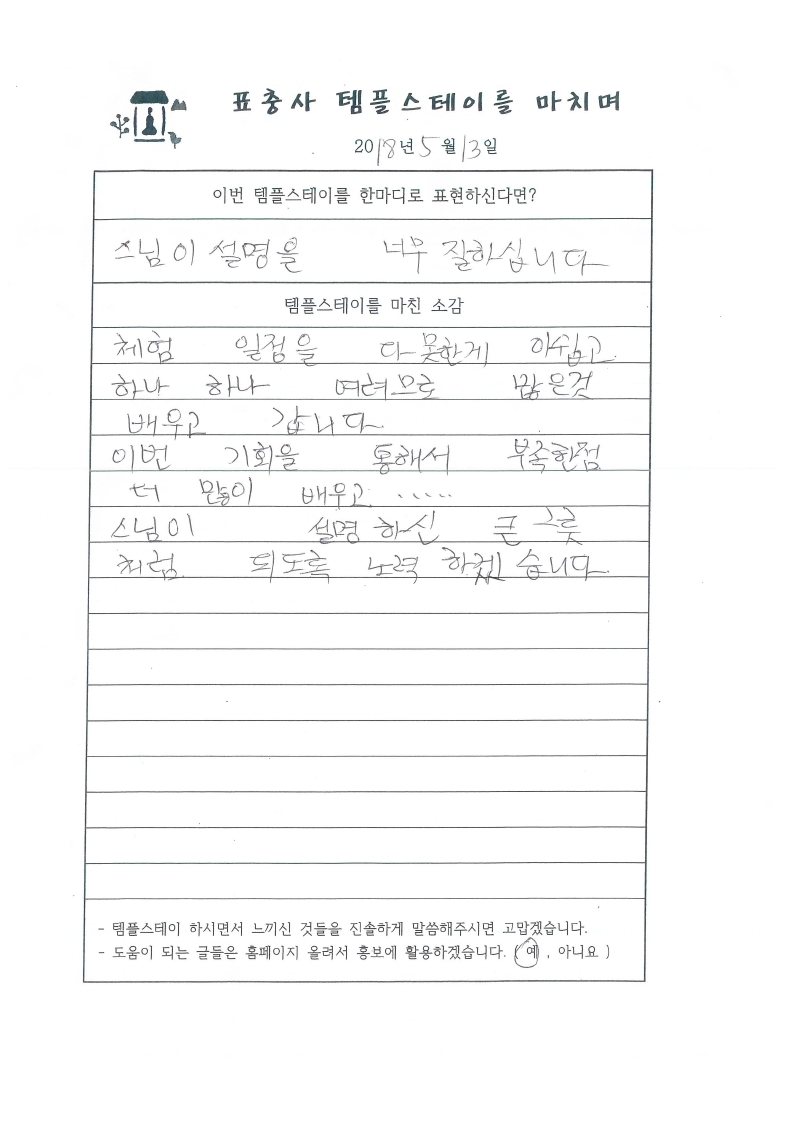 표충사 템플스테이를 마치며
2018년 5월 13일
이번 템플스테이를 한마디로 표현하신다면?
스님이 설명을 너무 잘하십니다
템플스테이를 마친 소감
체험 일정을 다 못한게 아쉽고
하나 하나 여려므로 많은것
배우고 갑니다
이번 기회을 통해서 부족한점
더 많이 배우고 .....
스님이 설명 하신 큰 그릇
처럼 되도록 노력 하겠습니다.
- 템플스테이 하시면서 느끼신 것들을 진솔하게 말씀해주시면 고맙겠습니다.
- 도움이 되는 글들은 홈페이지 올려서 홍보에 활용하겠습니다. ( 예 , 아니요 )